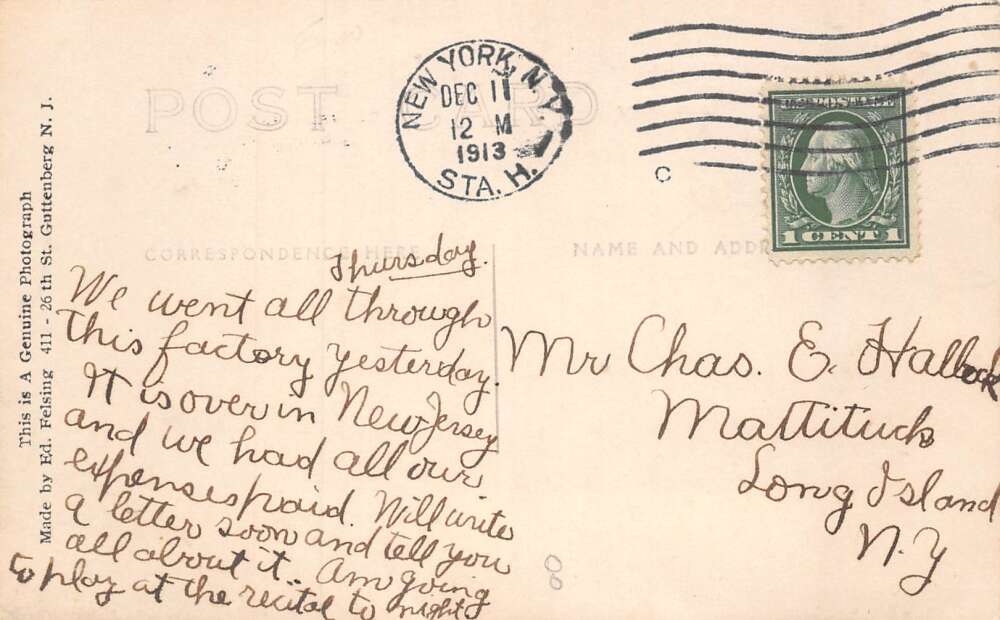 POST CARD
NEW YORK, N.Y.
DEC 11
12 M
1913
STA. H.
1 CENT 1
CORRESPONDENCE HERE
NAME AND ADDR
This is A Genuine Photograph
Made by Ed. Felsing 411 - 26 th St. Guttenberg N. J.
Thursday.
We went all through
this factory yesterday.
It is over in New Jersey
and we had all our
expenses paid. Will write
a letter soon and tell you
all about it.. Am going
to play at the recital to night
Mr Chas. E. Hallock
Mattituck
Long Island
N.Y